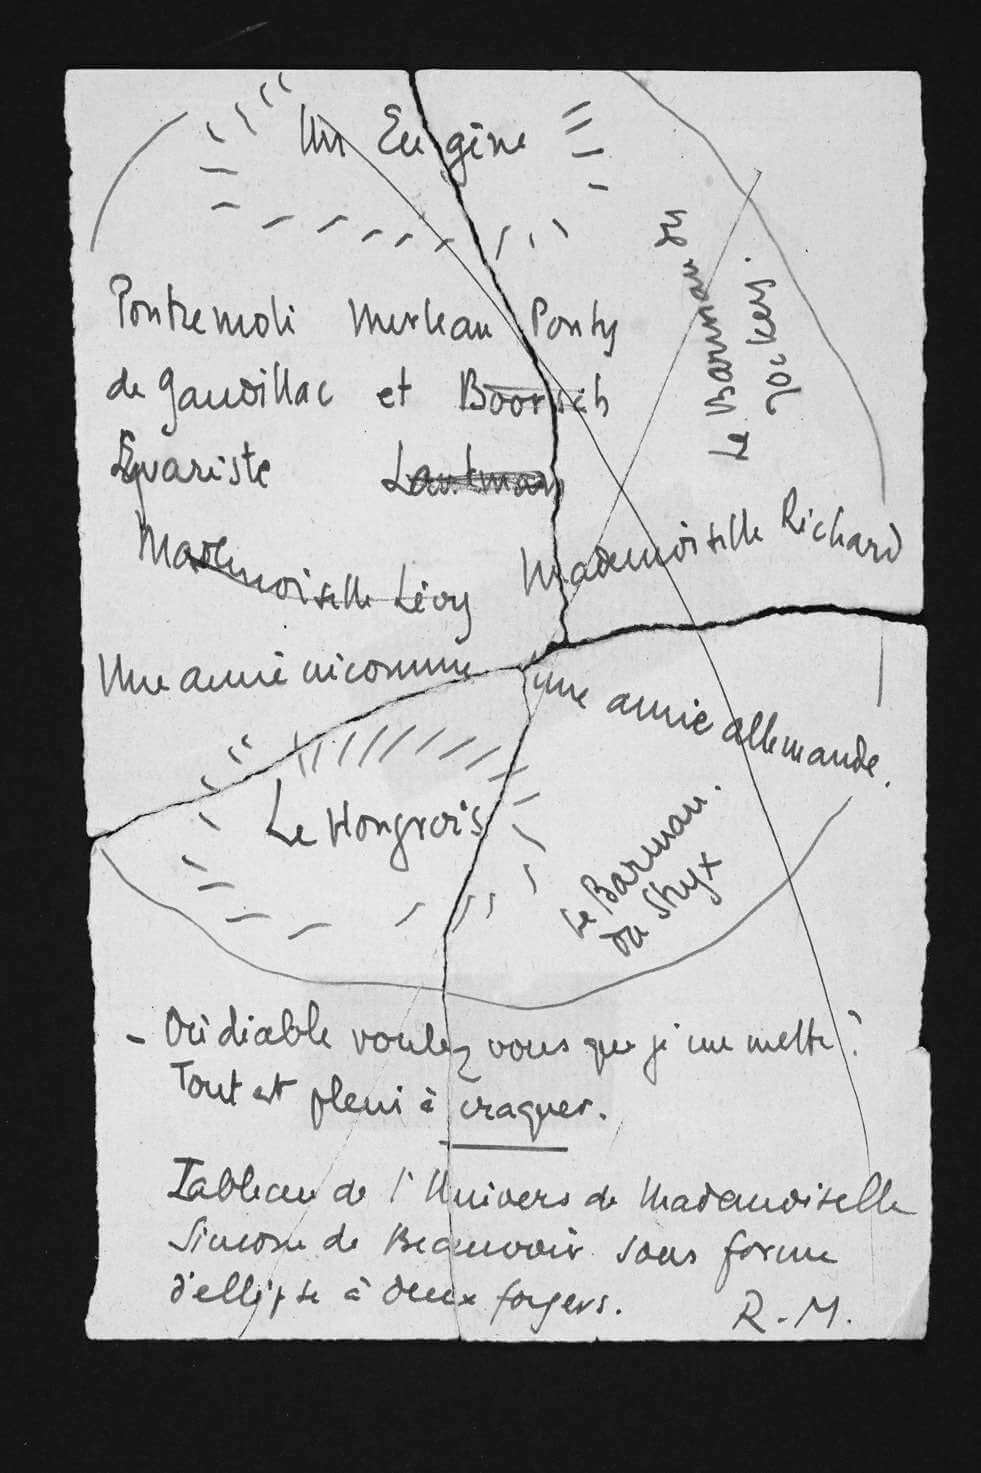 Un Eugène
Le Barman du
Jockey.
Pontremoli Merleau Ponty
de Gandillac et Boorsch
Evariste Lautman
Mademoiselle Lévy
Mademoiselle Richard
Une amie inconnue
une amie allemande.
Le Hongrois
Le Barman.
du Styx
- Où diable voulez vous que je me mette ?
Tout est plein à craquer.
Tableau de l'Univers de Mademoiselle
Simone de Beauvoir sous forme
d'ellipse à deux foyers.
R.M.